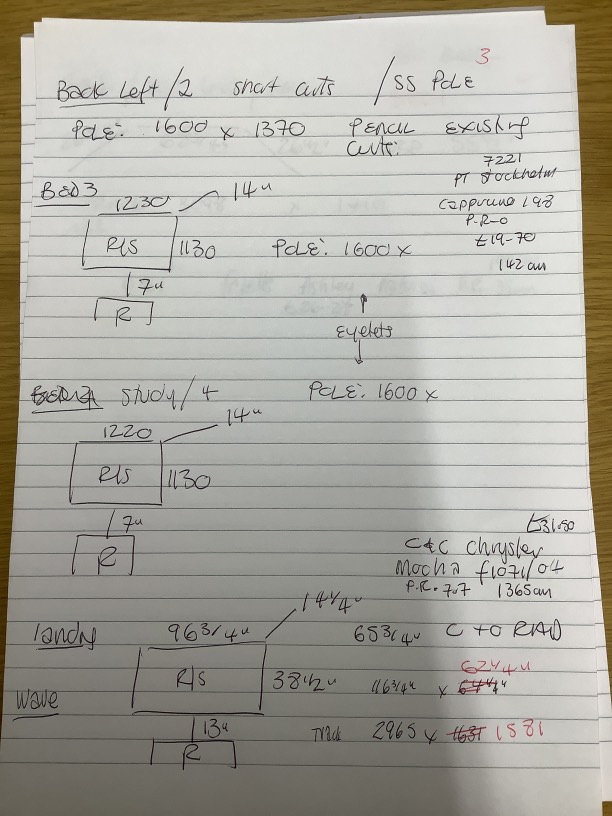 3
Back Left/2 short cuts /SS POLE
POLE: 1600 x 1370 PENCIL EXISTING
CUTS:
7221
PT Stockholm
BED 3
1230 14"
Cappruno 198
P.R-0
£19-70
142 cm
R/S 1130 POLE: 1600 x
7"
R
Eyelets
study/4 POLE: 1600 x
14"
1220
R/S 1130
7"
R
£31.50
C&C Chrysler
Mocha f1071/04
P.R. 7.7 1365cm
14 1/4"
landy 96 3/4" 65 3/4" C to RAD
62 1/4"
R/S 38 1/2" 116 3/4" x
wave
13"
Track 2965 x 1631 1581
R